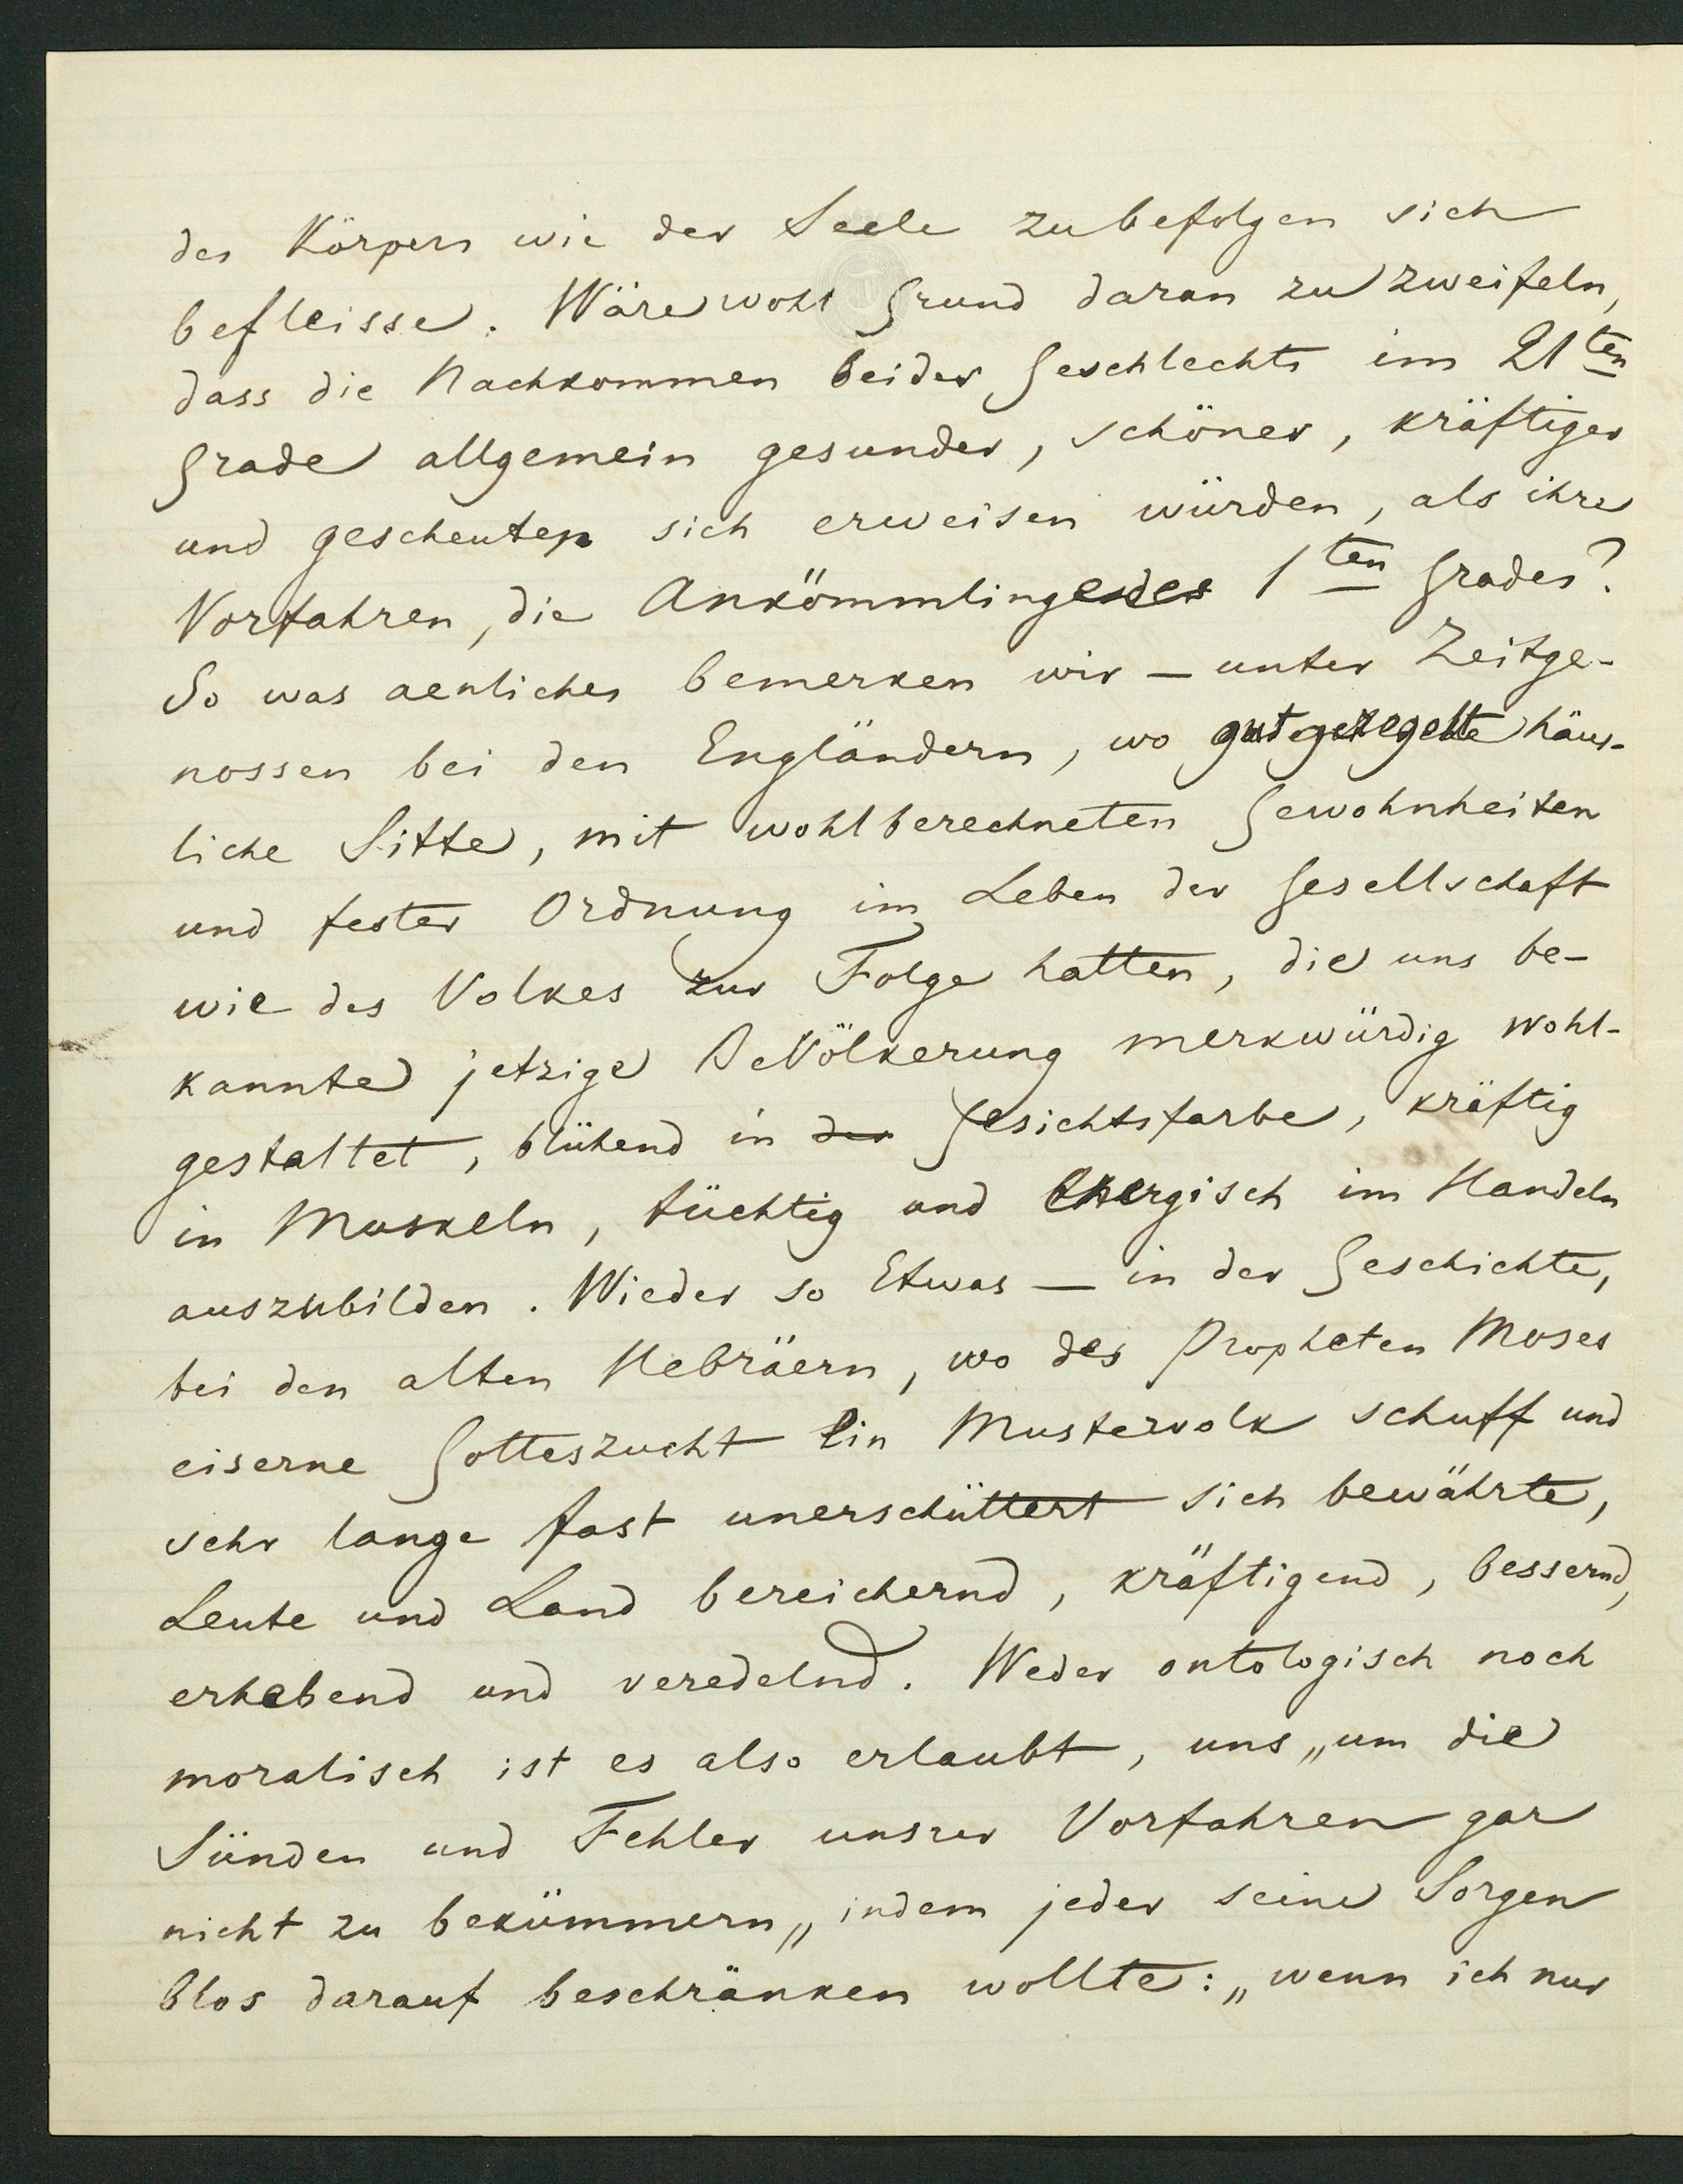 des Körpers wie der Seele zu befolgen sich
befleisse. Wäre wohl Grund daran zu zweifeln,
dass die Nachkommen beider Geschlechts im 21ten
Grade allgemein gesunder, schöner, kräftiger
und gescheuter sich erweisen würden, als ihre
Vorfahren, die Ankömmlinge des 1ten Grades?
So was aenliches bemerken wir – unter Zeitge-
nossen bei den Engländern, wo gutgeregelte häus-
liche Sitte, mit wohlberechneten Gewohnheiten
und fester Ordnung im Leben der Gesellschaft
wie des Volkes zur Folge hatten, die uns be-
kannte jetzige Bevölkerung merkwürdig wohl-
gestaltet, blühend in der Gesichtsfarbe, kräftig
in Muskeln, tüchtig und energisch im Handeln
auszubilden. Wieder so Etwas – in der Geschichte,
bei den alten Hebräern, wo des Propheten Moses
eiserne Gotteszucht ein Mustervolk schuff und
sehr lange fast unerschüttert sich bewährte,
Leute und Land bereichernd, kräftigend, bessernd,
erhebend und veredelnd. Weder ontologisch noch
moralisch ist es also erlaubt, uns „um die
Sünden und Fehler unsrer Vorfahren gar
nicht zu bekümmern„ indem jeder seine Sorgen
blos darauf beschränken wollte: „wenn ich nur